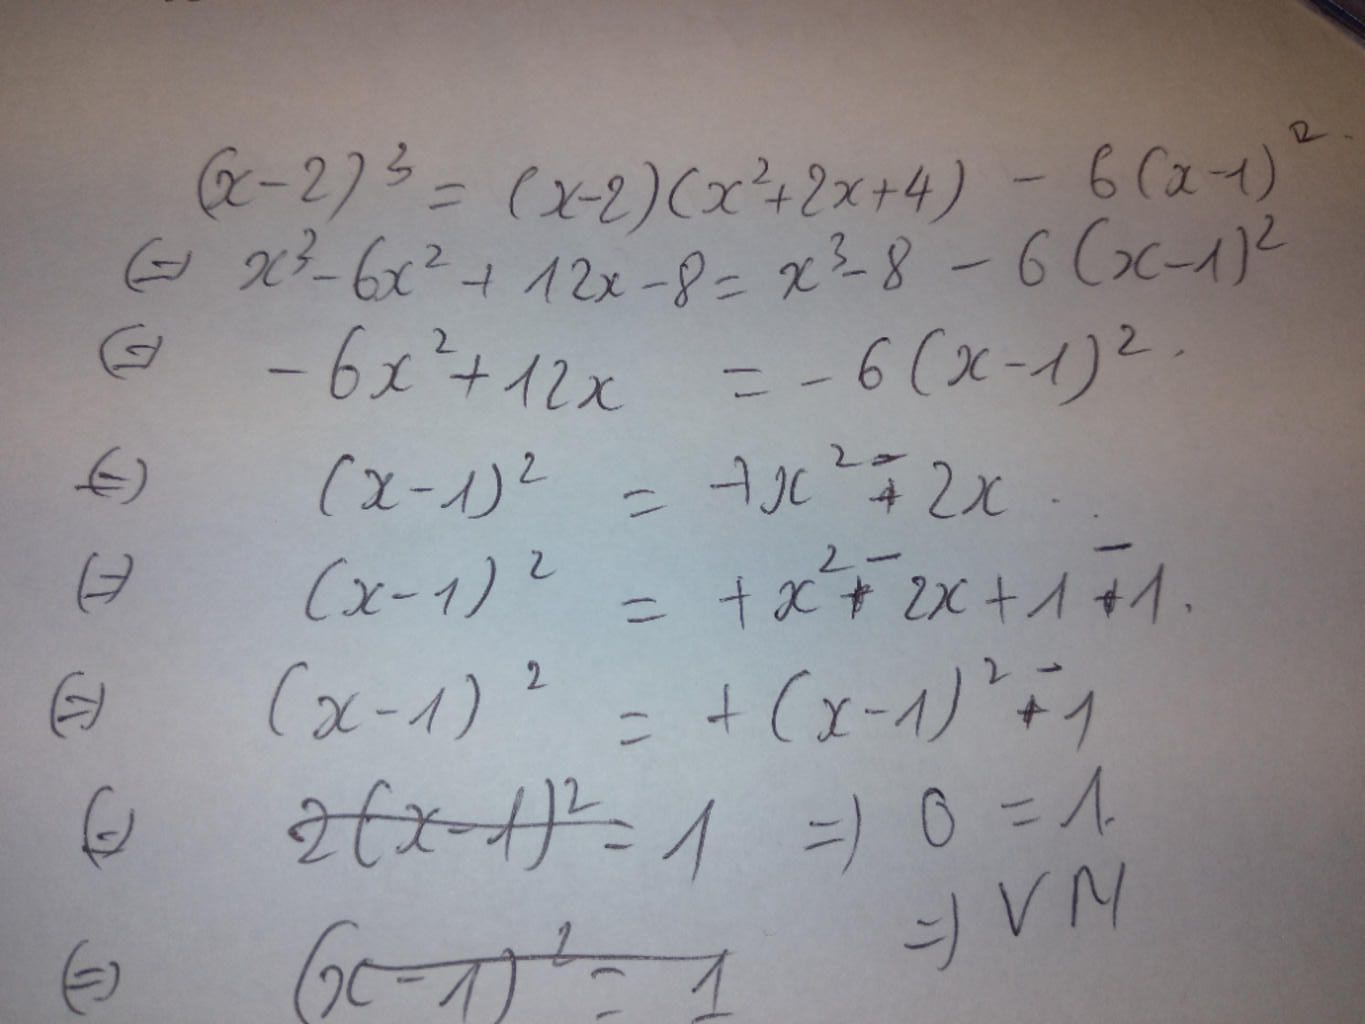 (x-2)³ = (x-2)(x²+2x+4) - 6(x-1)²
(=) x³-6x²+12x-8 = x³-8 - 6(x-1)²
(=) -6x²+12x = -6(x-1)².
(=) (x-1)² = +x² - 2x.
(=) (x-1)² = +x² - 2x+1-1.
(=) (x-1)² = +(x-1)² - 1
(=) 2(x-1)² = 1 =) 0 = 1.
=) VN
(=) (x-1)² = 1